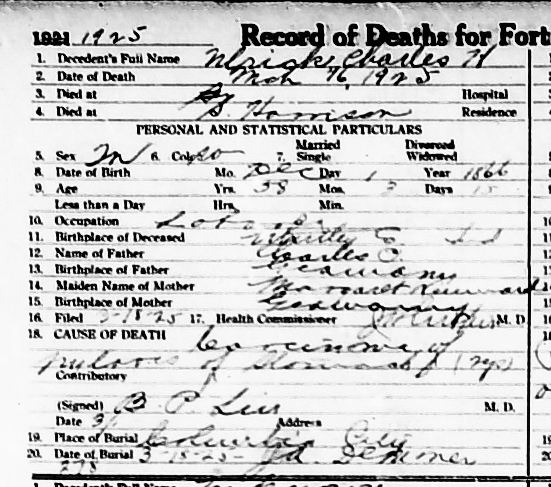 1921 1925 Record of Deaths for Fort
1. Decedent's Full Name Ulrick Charles H
2. Date of Death Mch 16, 1925
3. Died at Hospital
4. Died at S. Harrison Residence
PERSONAL AND STATISTICAL PARTICULARS
Married Divorced
5. Sex M 6. Color 7. Single Widowed
8. Date of Birth Mo. Dec Day 1 Year 1866
9. Age Yrs. 58 Mos. 3 Days 15
Less than a Day Hrs. Min.
10. Occupation Laborer
11. Birthplace of Deceased Whitley Co
12. Name of Father Charles C
13. Birthplace of Father Germany
14. Maiden Name of Mother Margaret
15. Birthplace of Mother Germany
16. Filed 3-18-25 17. Health Commissioner M. D.
18. CAUSE OF DEATH Carcinoma of
pyloris of stomach
Contributory
(Signed) B. P. M. D.
Date 3/ Address
19. Place of Burial Columbia City
20. Date of Burial 3-18-25
278
1. Decedent's Full Name